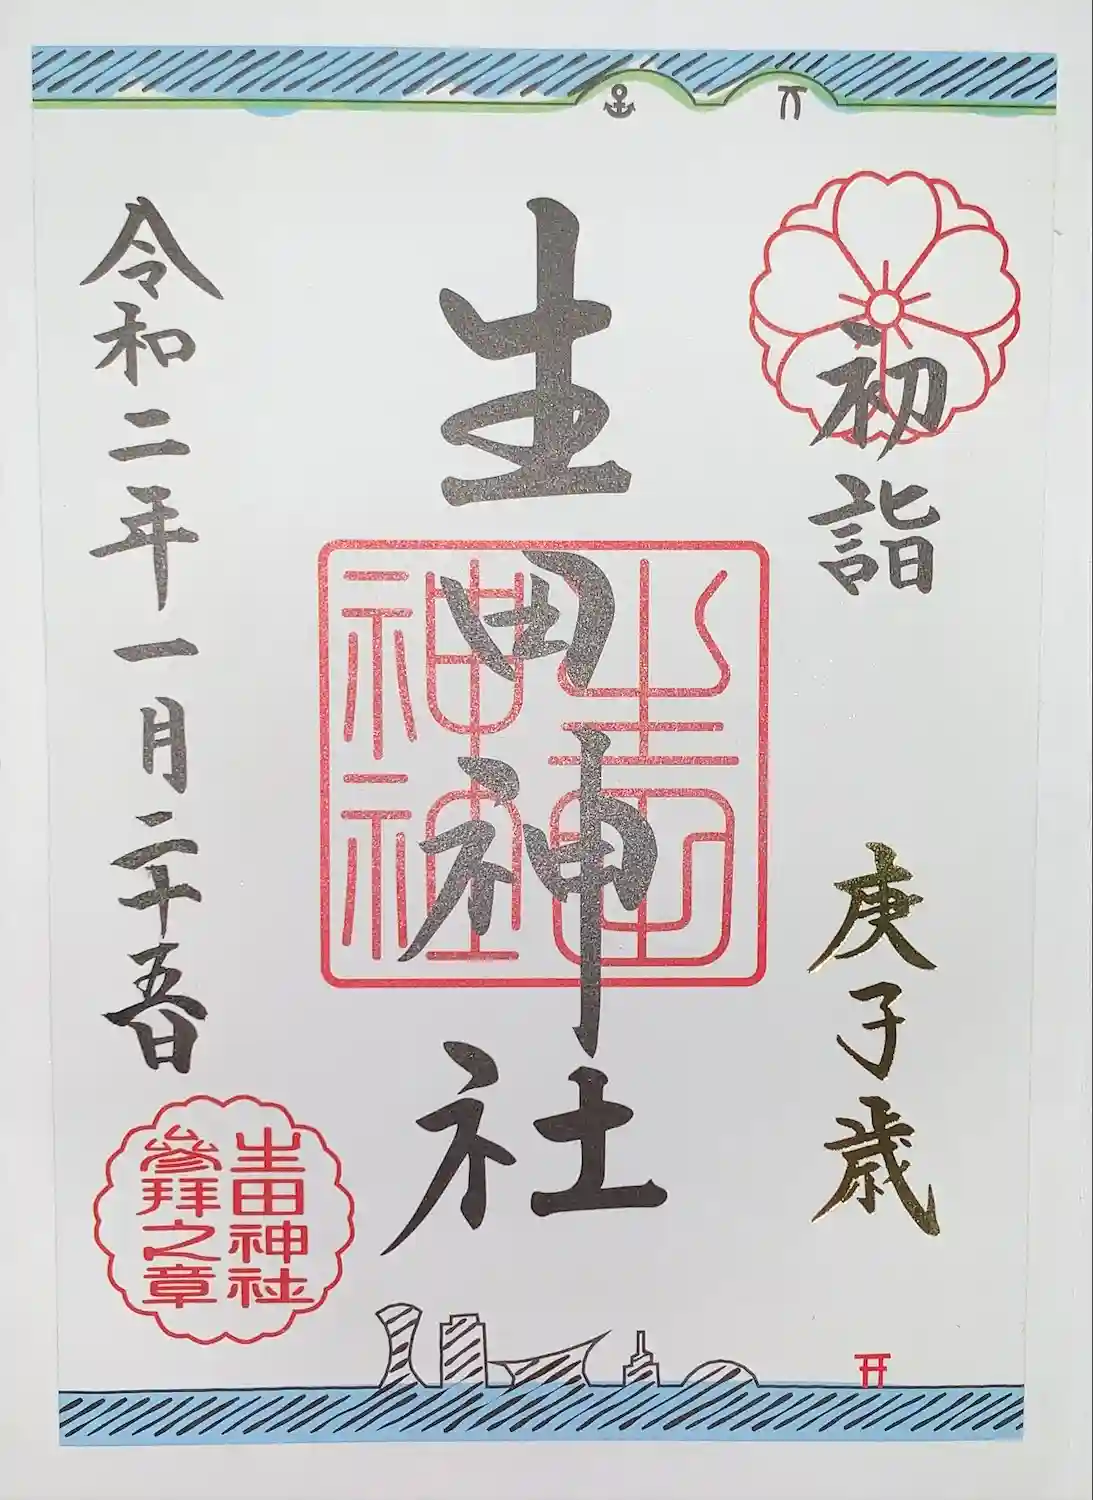 初詣
庚子歳
生田神社
生田神社
令和二年一月二十五日
生田神社
參拜之章